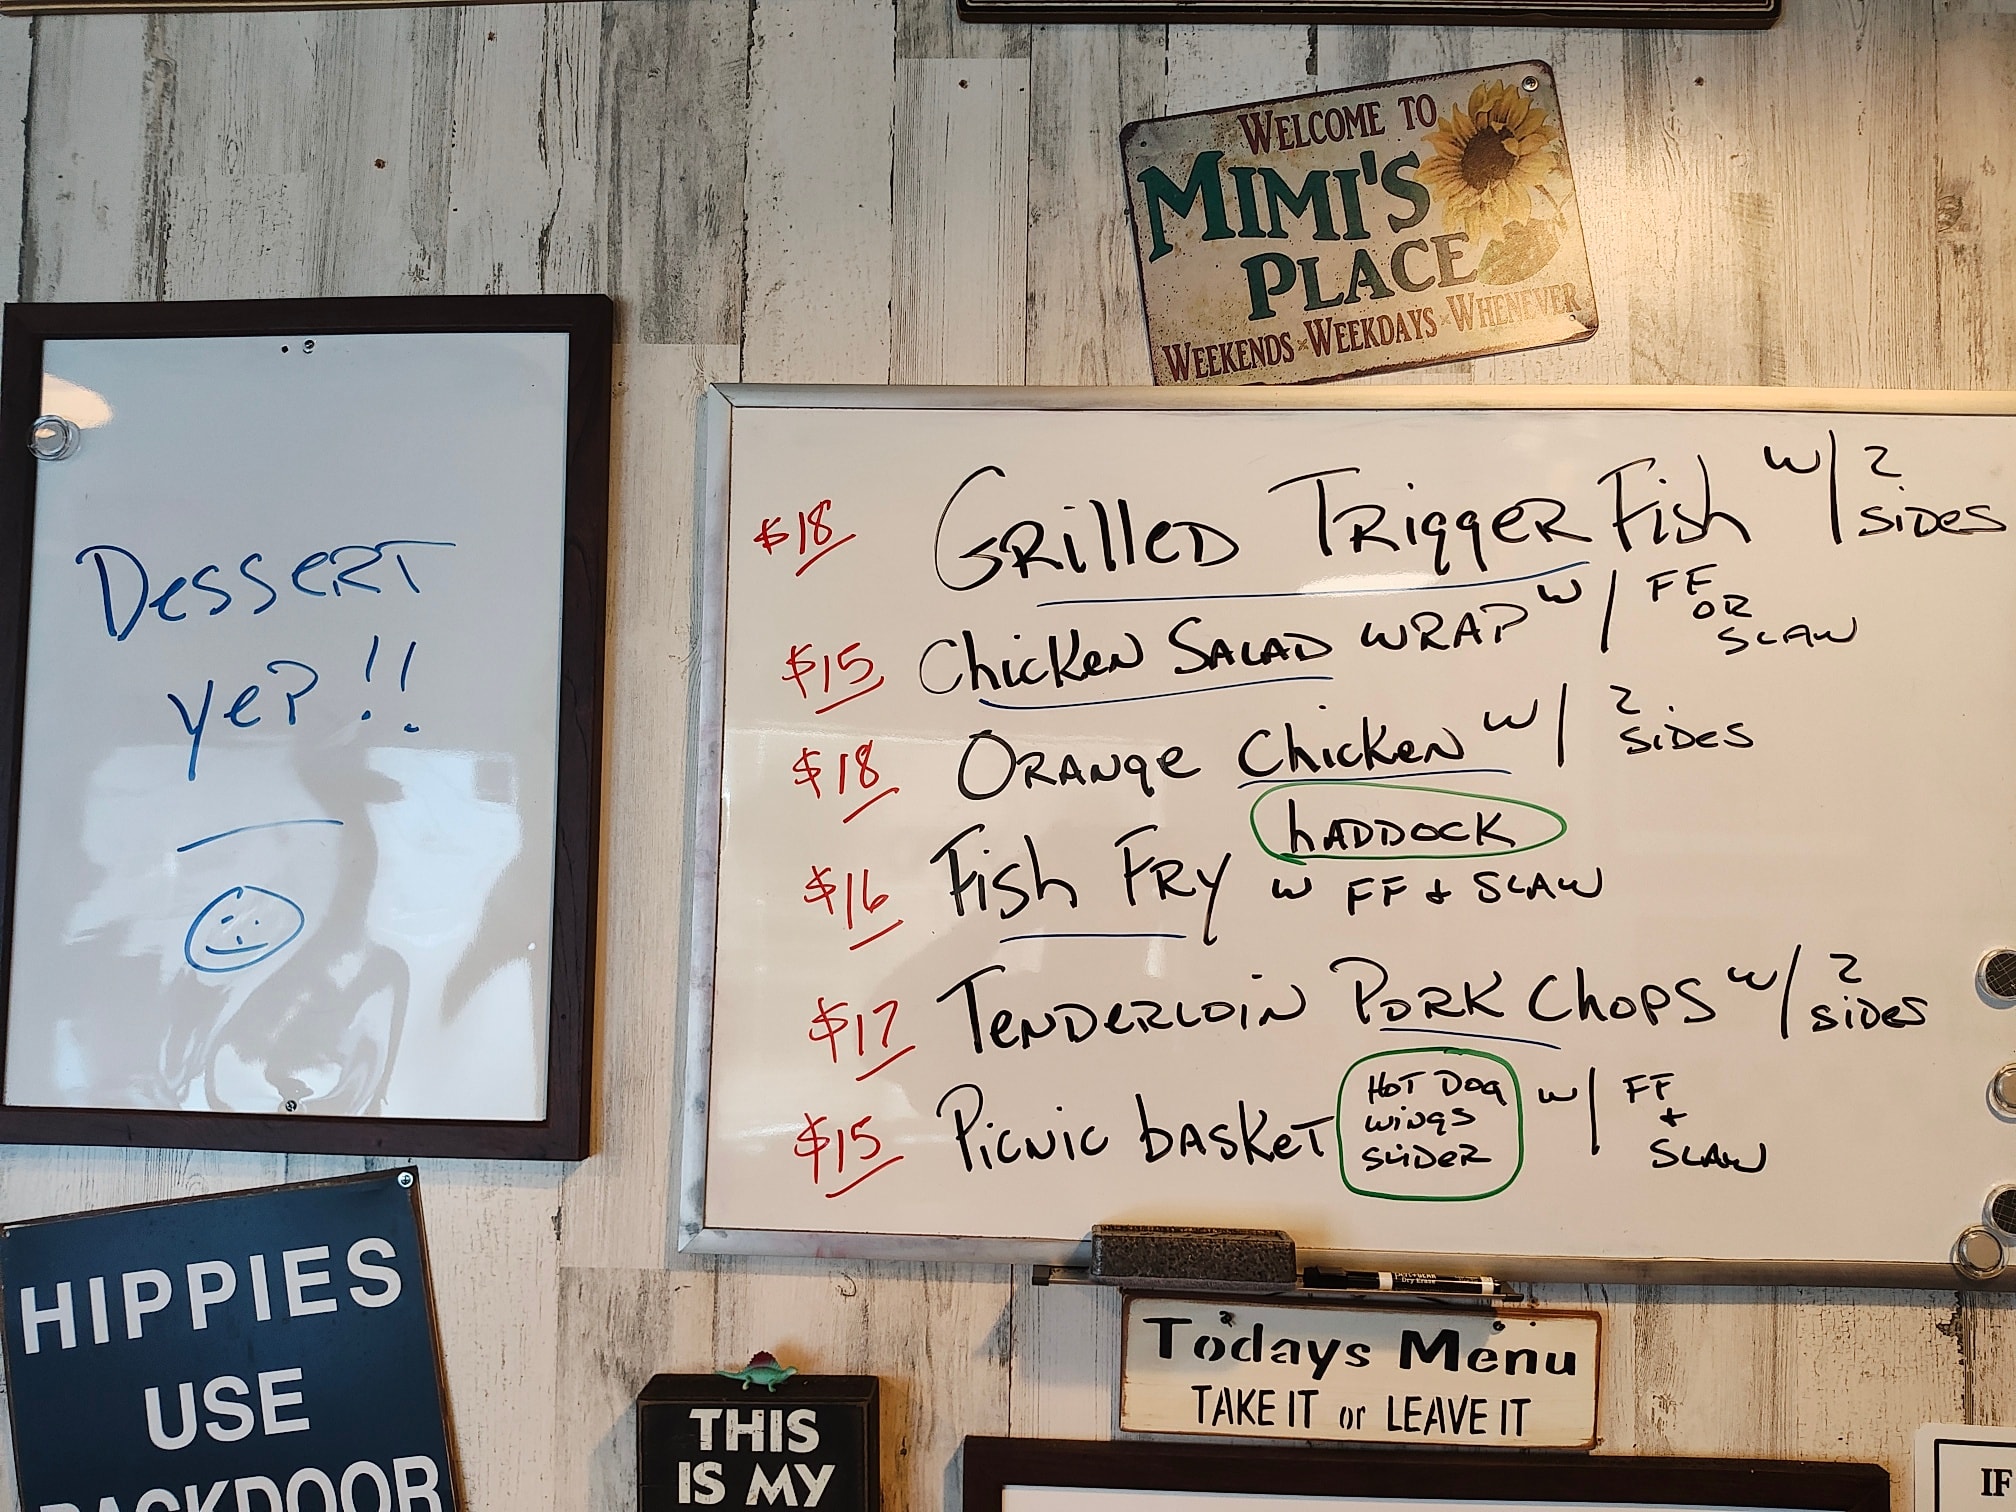 WELCOME TO
MIMI'S
PLACE
WEEKENDS WEEKDAYS WHENEVER
Dessert
yep!!
$18 Grilled Trigger Fish w/ 2 sides
$15 Chicken Salad wrap w/ FF or slaw
$18 Orange Chicken w/ 2 sides
haddock
$16 Fish Fry w FF + slaw
$17 Tenderloin Pork Chops w/ 2 sides
$15 Picnic basket Hot Dog wings slider w/ FF + slaw
HIPPIES
USE
BACKDOOR
THIS
IS MY
Todays Menu
TAKE IT or LEAVE IT
IF